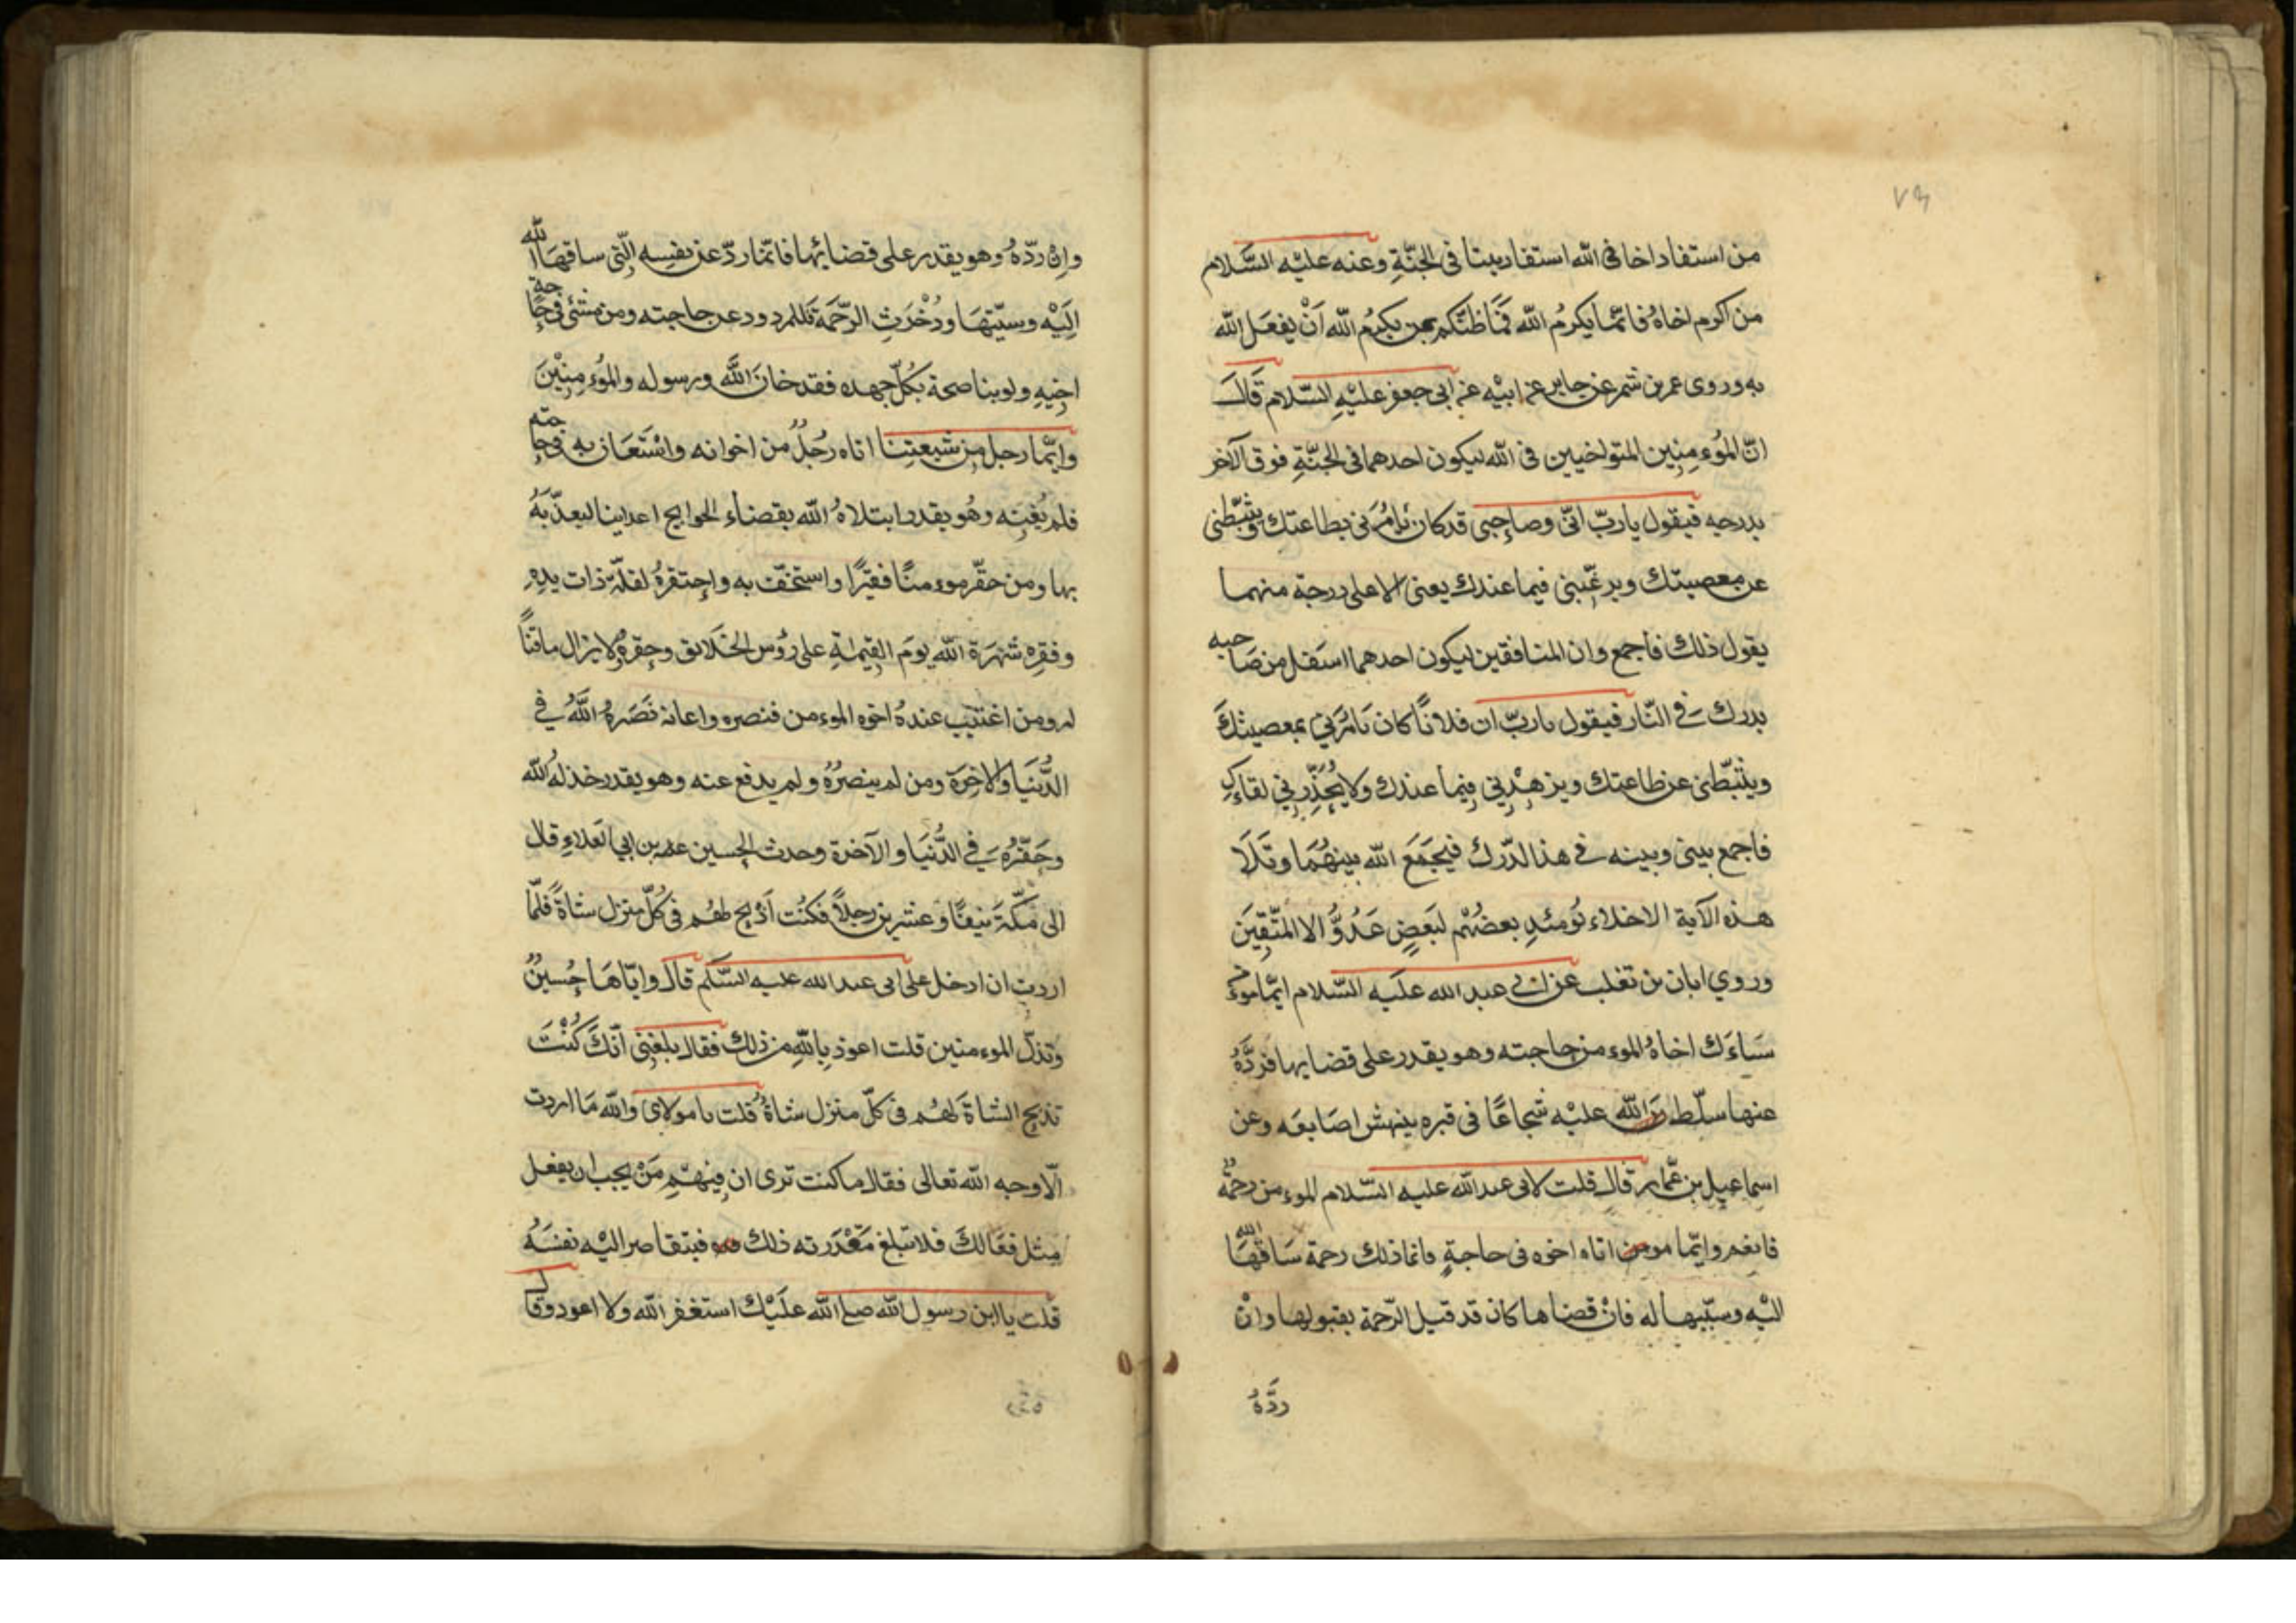 ٧٦
من استفاد اخا فى الله استفاد بيتا فى الجنّةِ وعنه عليْه السَّلام
من اكرم اخاهُ فانّما يكرمُ الله فَمَا ظنّكم بمن يكرمُ الله اَنْ يفعَل الله
به وروى عمر بن شمر عن جابر عن ابيْه عن ابى جعفر عليْهِ السّلام قَالَ
انّ الموُءمِنِين المتواخيين فى الله ليكون احدهما فى الجنّةِ فوق الآخر
بدرجه فيقول ياربّ انّ وصاحِبى قدكان يامُرَنى بطاعتك ويثبّطنى
عن معصيتك ويرغّبنى فيما عندك يعنى الاعلى درجة منهما
يقول ذلك فاجمع وان المنافقين ليكون احدهما اسَفل من صَاحبه
بدرك فے النّار فيقول يا ربّ ان فلانًا كان يَامُرَنِي بمعصيتكَ
ويثبّطنى عن طاعتك ويزهِدْنِي فِيما عندك ولا يُحَذِّرنِي لقاءكِ
فاجمع بينى وبينه فے هذالدّرك فيَجمَعَ الله بينهُمَا وتَلَا
هذه الآية الاخلاء يَومئذٍ بعضُهْم لبَعضٍ عَدُوُّ الا المتّقِيَن
وروي ابان بن تغلب عن ابى عبد الله عليه السّلام ايّما موءمن
سَاءَلَ اخاهُ الموءمن حاجته وهو يقدر على قضايها فردَّهُ
عنها سلّط الله عليْه شجاعًا فى قبره ينهش اصَابعَه وعن
اسماعيل بن عّمار قال قلت لابى عبدالله عليه السّلام الموءمن رحمةٌ
فانعم وايّما مومن اتاه اخوه فى حاجةٍ فانما ذلك رحمة سَاقهَا الله
اليْه وسبّبها له فانْ قضاها كان قد قبل الرّحمة بقبولها وانْ
ردَّهُ
وانْ ردّهُ وهو يقدر على قضائها فانّما ردّ عن نفسِه الّتى ساقهَا الله
اِليَهْ وسبّبهَا ودُخْرَتِ الرّحَمَة للمردود عن حاجته ومن مشَى فى حاجة
اخِيهِ ولو يناصحة بكُلّ جهده فقد خانَ اللَّه ورسوله والموُءمِنِيْنَ
وايّما رجل مِن شيعتِنا اتاه رَجُلٌ من اخوانه واسْتَعَان به فى حاجته
فلم يُعِنه وهُو يقدر ابتلاهُ الله بقضاء الحوايج اعداينا ليعذّبَهُ
بها ومن حقّر موءمنًا فقيرًا واستخفّ به واحِتقرهُ لقلّة ذات يدِهِ
وفقرِه شهَرَة الله يومَ القِيمةِ على رؤس الخَلايق وحقرهُ ولا يزال ماقتًا
له ومن اغتيب عندهُ اخوه الموءمن فنصره واعانه نَصَرهُ اللَّهُ في
الدُّنيَا والاخِرَة ومن لم ينصرُهُ ولم يدفع عنه وهو يقدر خذلهُ الله
وحَقّرُهُ فے الدُّنيَا والآخرة وحدث الحِسين بن ابي العَلاءِ قال
الى مكّةَ نيفًا وعشرين رجلاً فكنُت اَذبح لهُم فى كُلّ منزل شاةً فلمّا
اردت ان ادخل على ابى عبد الله عليه السَّلم قال وايّاهَا حُسينٌ
وتذلّ الموءمنين قلت اعوذ بِاللهِ من ذلك فقال بلغنِى اَنّكَ كُنْتَ
تذبح الشاةَ لهُم فى كلّ منزل شاةُ قلت يا مولاى والله مَا اردت
الّا وجه الله تعالى فقال ما كنت ترى ان فِيهْم مَنْ يحب ان يفعل
مِثل فعَالكَ فلا تبلغ مَقْدَرته ذلك فيتقاصر اليْه نفسَهُ
قلت يا ابن رسول الله صلى الله علَيْك استغفر الله ولا اعود وقال